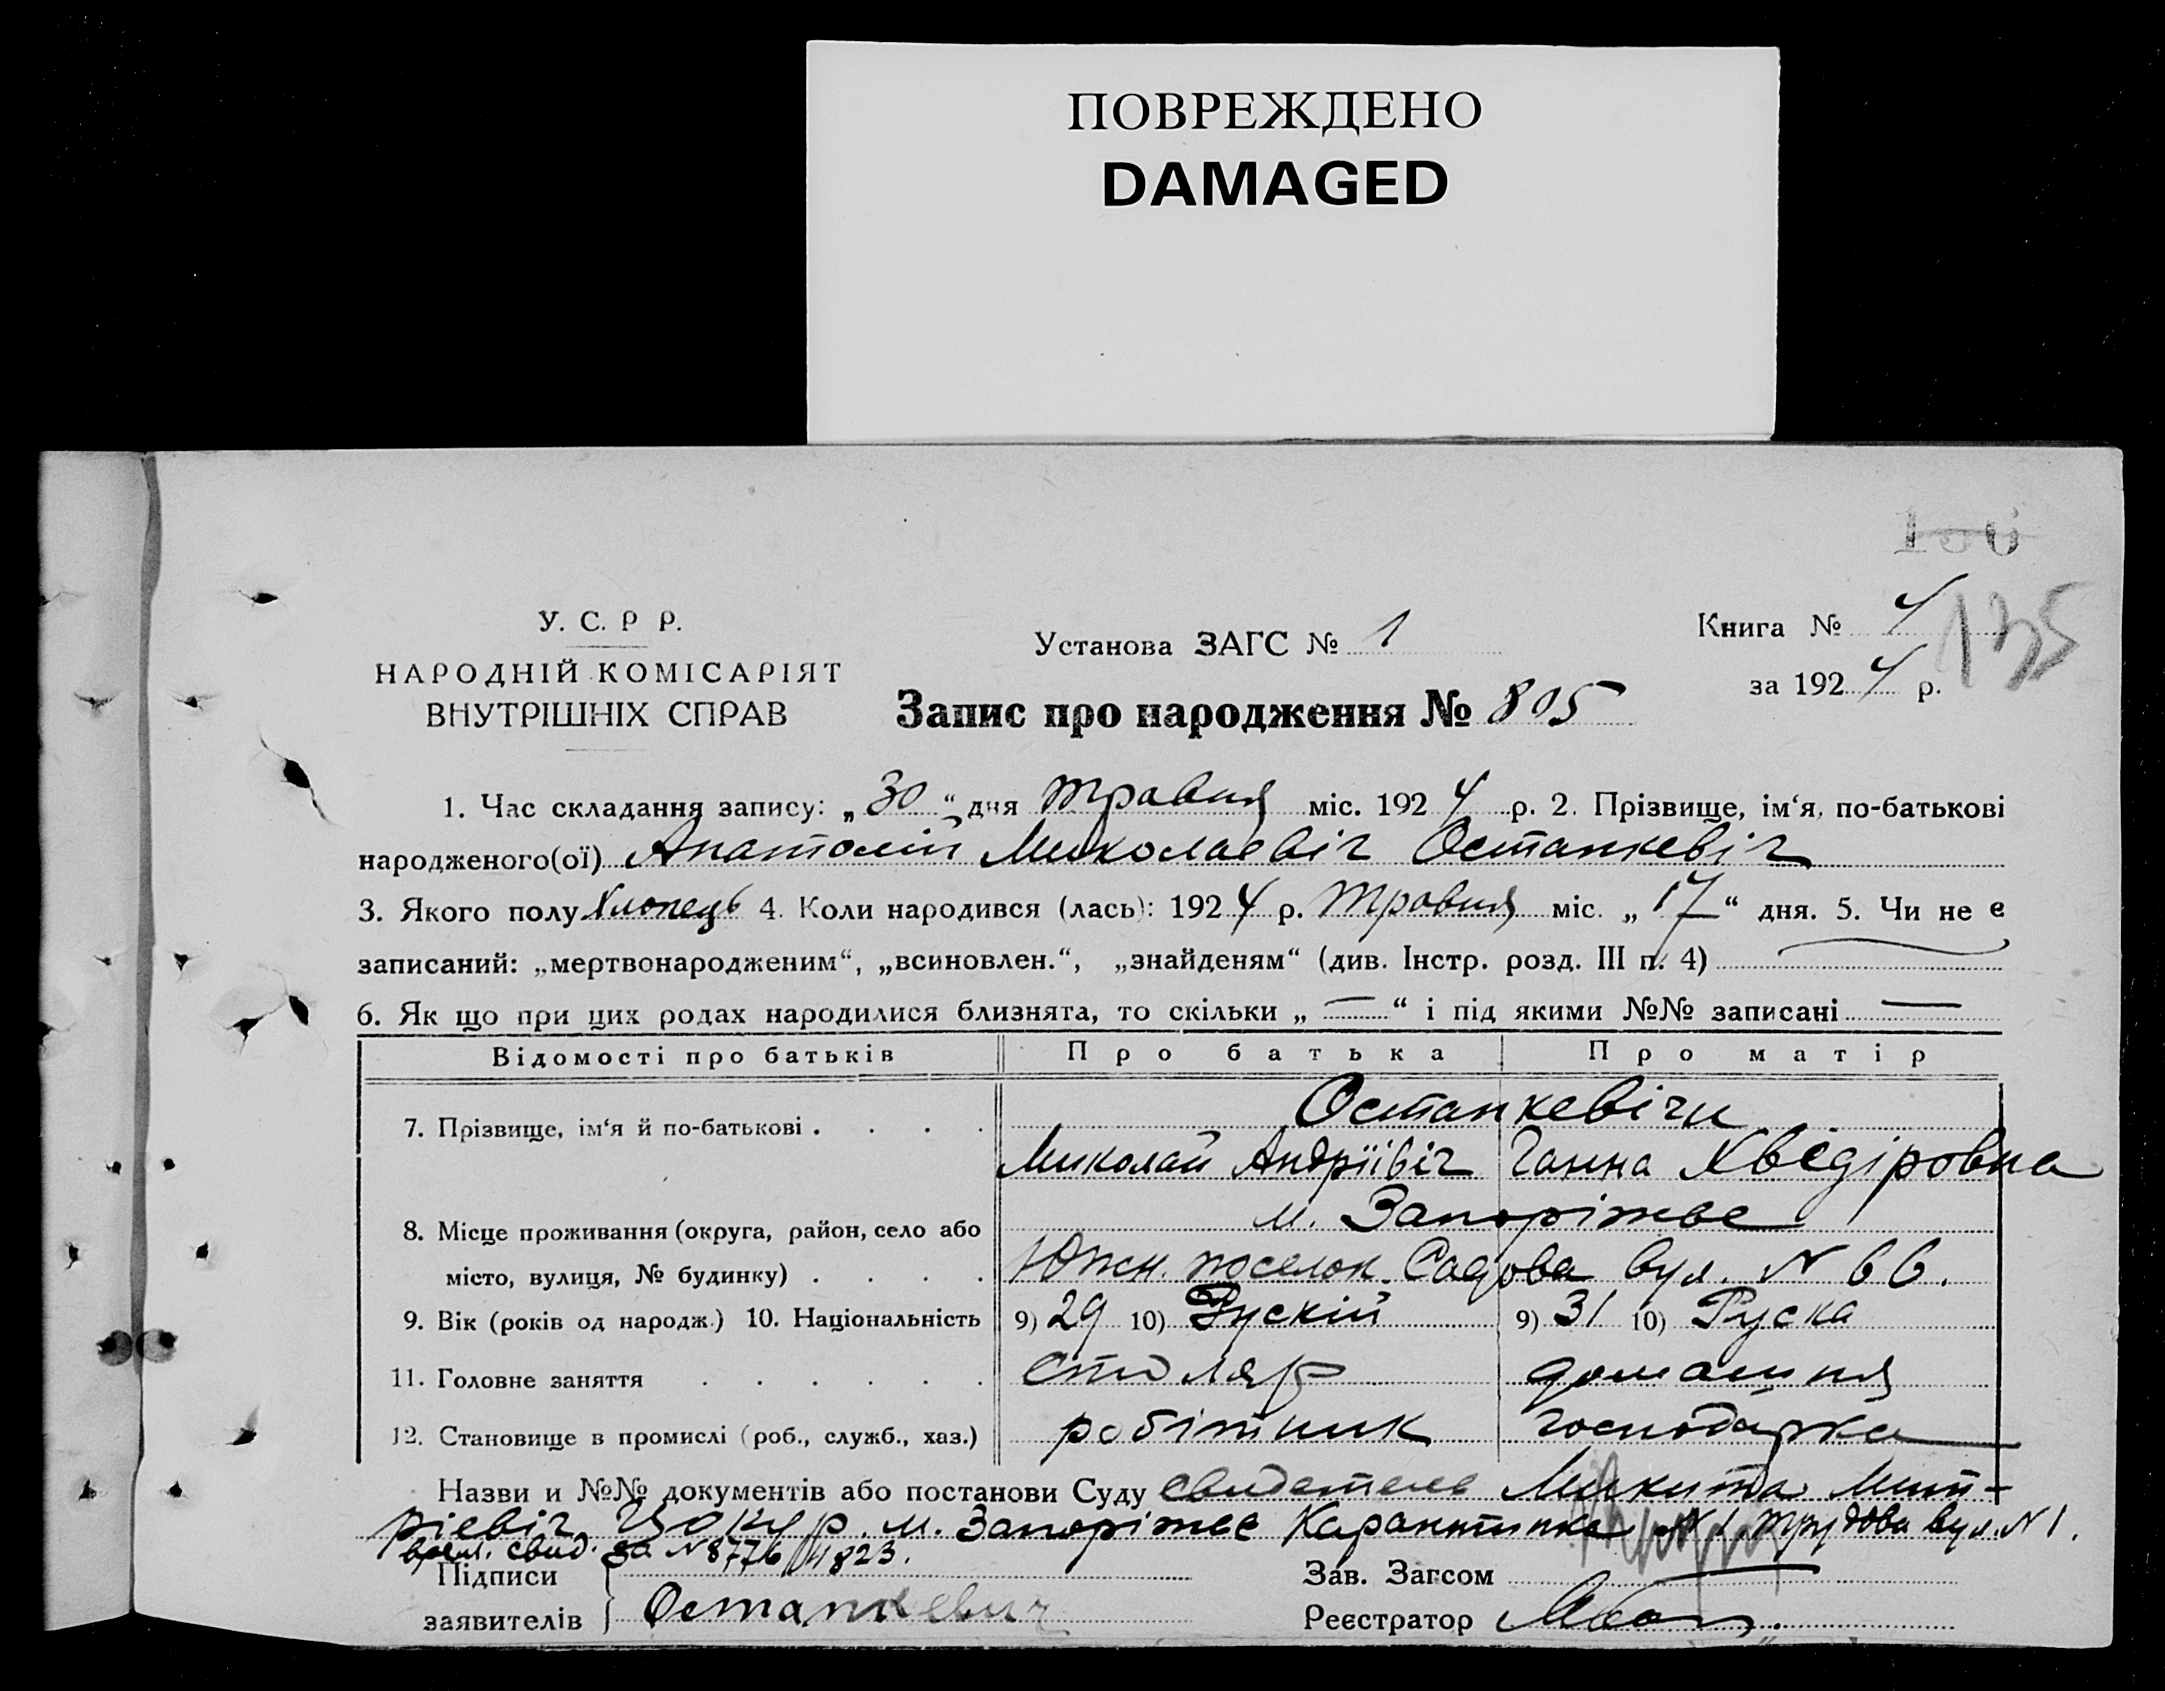 ПОВРЕЖДЕНО
DAMAGED
135
У. С. Р Р.
НАРОДНІЙ КОМІСАРІЯТ
ВНУТРІШНІХ СПРАВ
Установа ЗАГС № 1
Запис про народження № 805
Книга № 4
за 1924 р.
1. Час складання запису: „30“ дня травня міс. 1924 р. 2. Прізвище, ім‘я, по-батькові
народженого(ої) Анатолій Миколаєвіч Останкевіч
3. Якого полу Хлопець 4. Коли народився (лась): 1924 р. травня міс. „17“ дня. 5. Чи не є
записаний: „мертвонародженим“, „всиновлен.“, „знайденям“ (див. Інстр. розд. III п. 4) —
6. Як що при цих родах народилися близнята, то скільки „—“ і під якими №№ записані —
Відомості про батьків Про батька Про матір
Останкевічи
7. Прізвище, ім‘я й по-батькові . . . .
Миколай Андріївіч Ганна Хведіровна
м. Запоріжве
8. Місце проживання (округа, район, село або
місто, вулиця, № будинку) . . . . Южн. поселок. Садова вул. N 66.
9. Вік (років од народж.) 10. Національність 9) 29 10) Рускій 9) 31 10) Руска
11. Головне заняття . . . . . . столяр домашня
12. Становище в промислі (роб., служб., хаз.) робітник господарка
Назви и №№ документів або постанови Суду свидетель Микита Мит-
ріевіч р. м. Запоріжве Карантинка N 1 Трудова вул. N 1.
врем. свид. за N 8776/4823.
Підписи
заявителів Останкевич
Зав. Загсом
Реєстратор